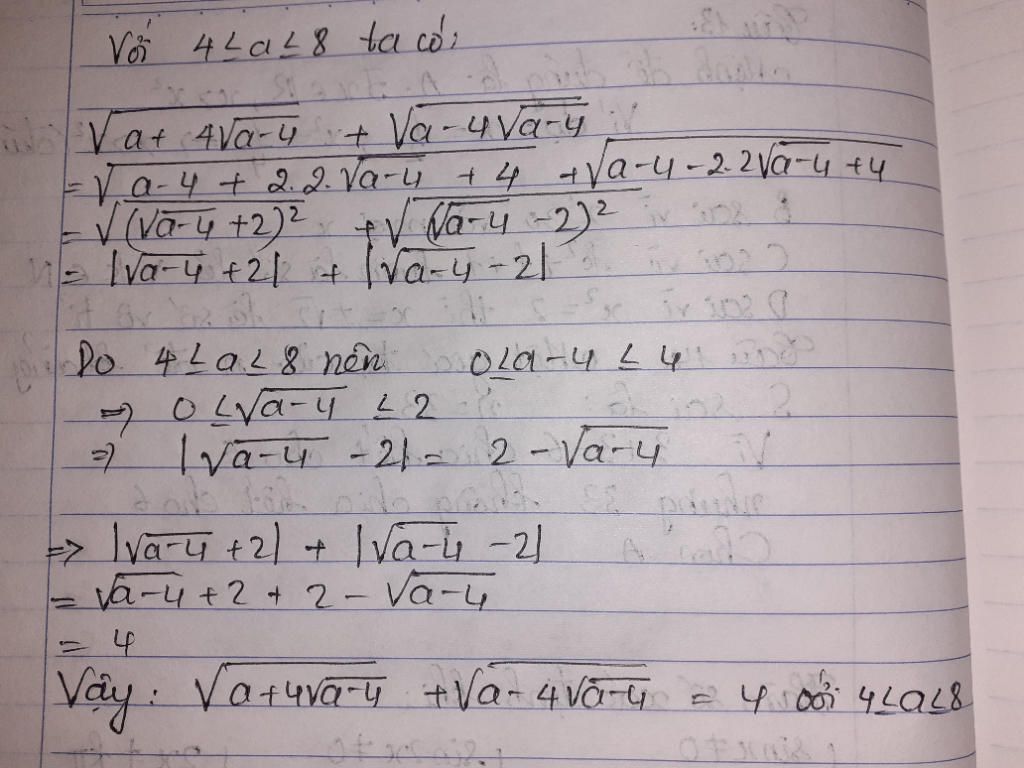 Với 4 ≤ a ≤ 8 ta có:
√(a + 4√(a-4)) + √(a - 4√(a-4))
= √(a-4 + 2.2.√(a-4) + 4) + √(a-4 - 2.2√(a-4) + 4)
= √((√(a-4) + 2)²) + √((√(a-4) - 2)²)
= |√(a-4) + 2| + |√(a-4) - 2|
Do 4 ≤ a ≤ 8 nên 0 ≤ a-4 ≤ 4
=> 0 ≤ √(a-4) ≤ 2
=> |√(a-4) - 2| = 2 - √(a-4)
=> |√(a-4) + 2| + |√(a-4) - 2|
= √(a-4) + 2 + 2 - √(a-4)
= 4
Vậy: √(a + 4√(a-4)) + √(a - 4√(a-4)) = 4 với 4 ≤ a ≤ 8